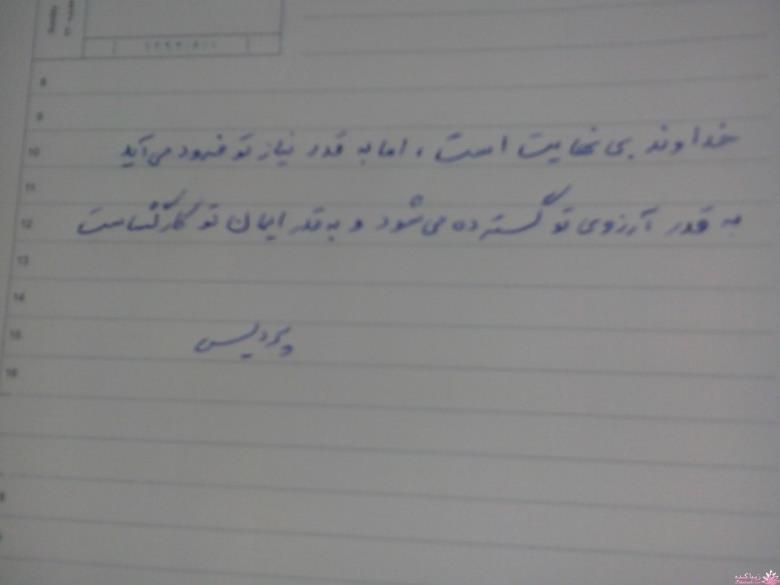 8
9
خداوند بی نهایت است، اما به قدر نیاز تو فرود می آید
10
11
به قدر آرزوی تو گسترده می شود و به قدر ایمان تو کارگشاست
12
13
14
پردیس
15
16
زیباکده